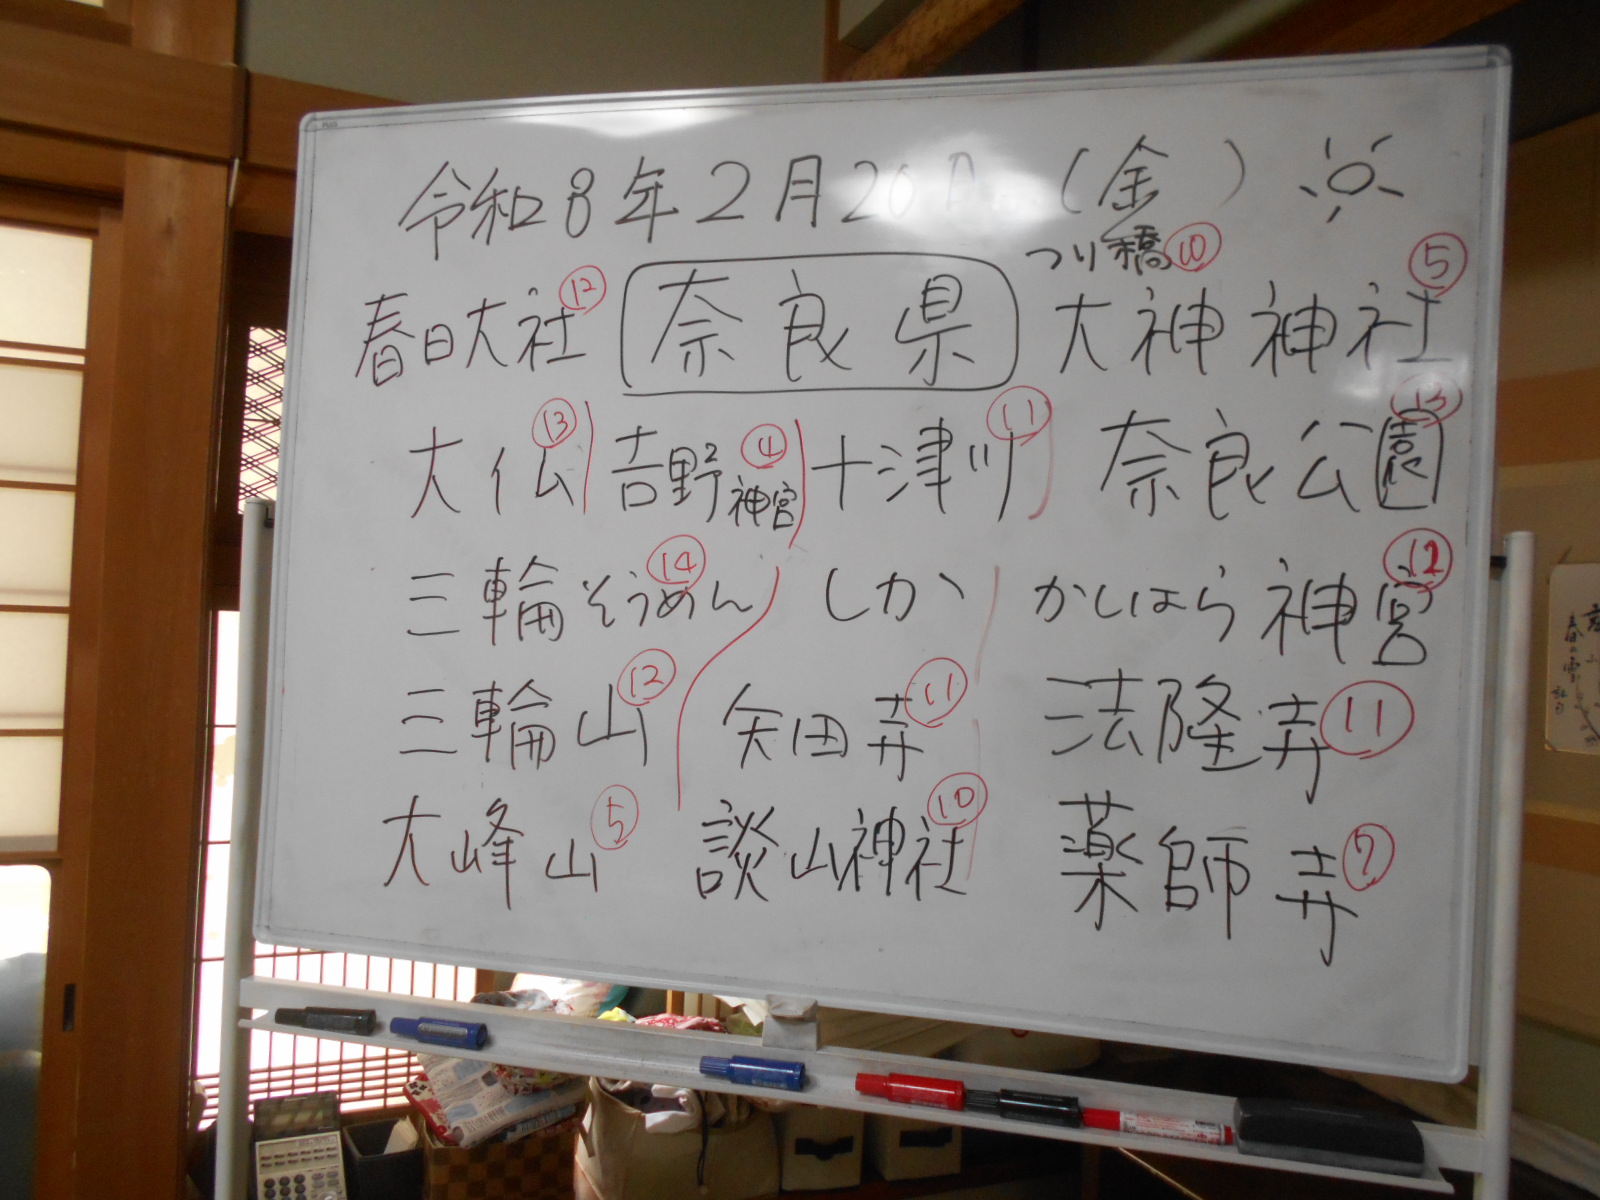 令和8年2月20日(金)
つり橋⑩
春日大社⑫ 奈良県 大神神社⑤
大仏⑬ 吉野神宮④ 十津川⑪ 奈良公園⑬
三輪そうめん⑭ しか かしはら神宮⑫
三輪山⑫ 矢田寺⑪ 法隆寺⑪
大峰山⑤ 談山神社⑩ 薬師寺⑦
春の雪